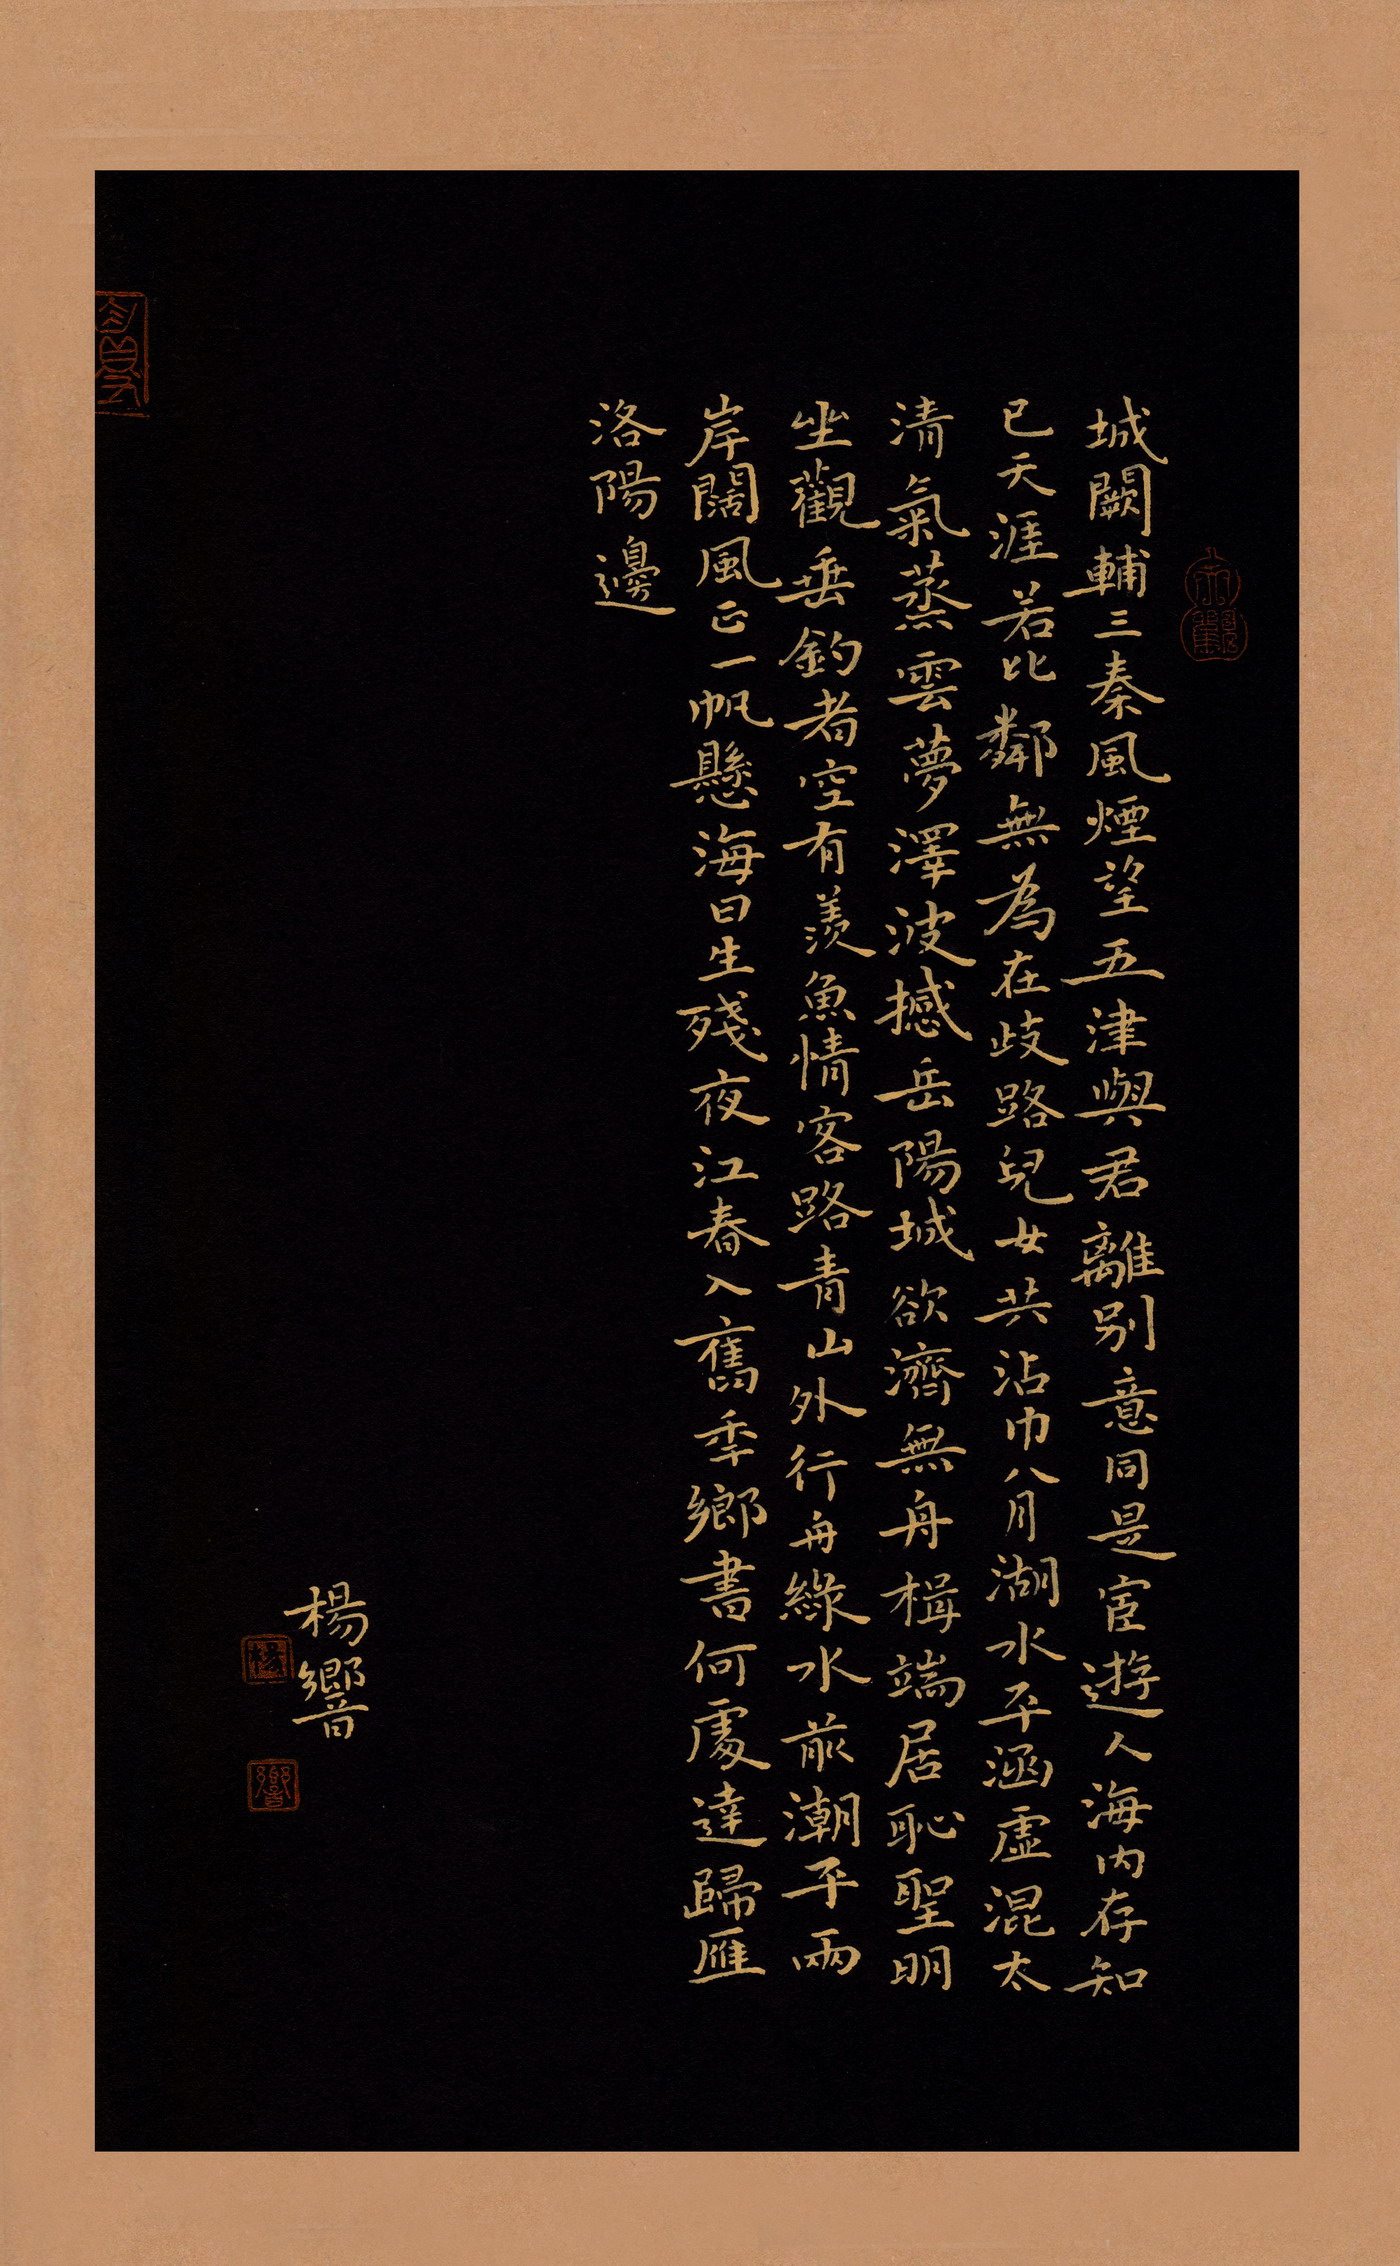 城闕輔三秦風煙望五津與君離別意同是宦遊人海内存知
已天涯若比鄰無為在歧路兒女共沾巾八月湖水平涵虛混太
清氣蒸雲夢澤波撼岳陽城欲濟無舟楫端居恥聖明
坐觀垂釣者空有羨魚情客路青山外行舟綠水前潮平兩
岸闊風正一帆懸海日生殘夜江春入舊季鄉書何處達歸雁
洛陽邊
楊響